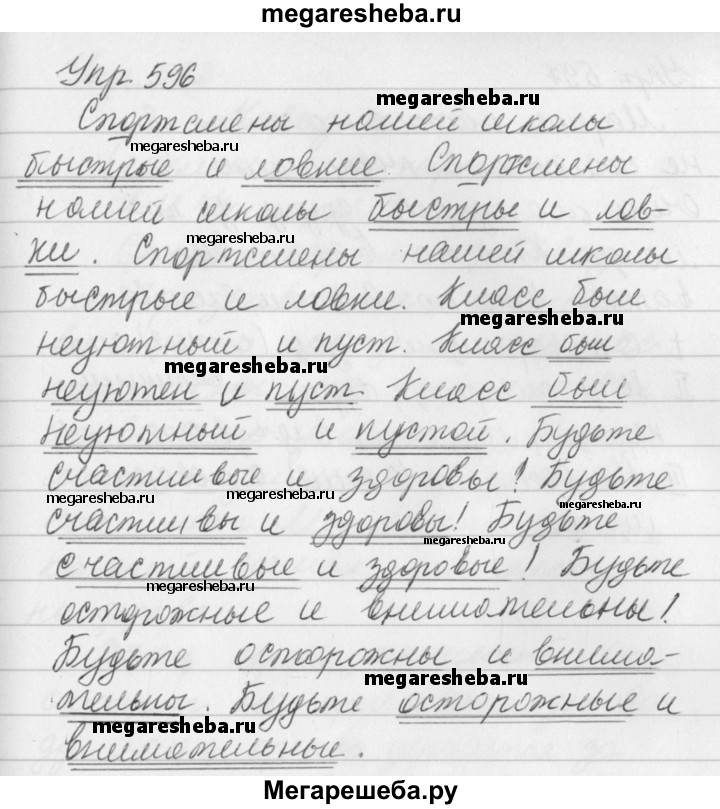 megaresheba.ru
Упр 596
megaresheba.ru
Спортсмены нашей школы
megaresheba.ru
быстрые и ловкие. Спортсмены
нашей школы быстры и лов-
megaresheba.ru
ки. Спортсмены нашей школы
быстрые и ловки. Класс был
megaresheba.ru
неуютный и пуст. Класс был
megaresheba.ru
неуютен и пуст. Класс был
неуютный и пустой. Будьте
счастливые и здоровы! Будьте
megaresheba.ru
megaresheba.ru
счастливы и здоровы! Будьте
megaresheba.ru
счастливые и здоровые! Будьте
megaresheba.ru
осторожные и внимательны!
Будьте осторожны и внима-
megaresheba.ru
тельны. Будьте осторожные и
megaresheba.ru
внимательные.
Мегарешеба.ру